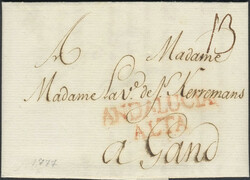 A Madame 13
Madame La V.e de S.r Kerremans
ANDALUCIA
ALTA
a Gand
1777